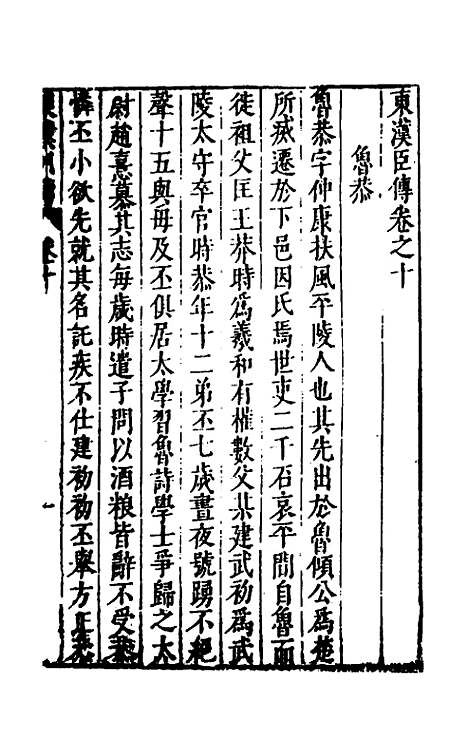 東漢臣傳卷之十
魯恭
魯恭字仲康扶風平陵人也其先出於魯傾公爲楚
所㓕遷於下邑因氏焉世吏二千石哀平間自魯而
徙祖父匡王莽時爲羲和有權數父某建武初爲武
陵太守卒官時恭年十二弟丕七歲晝夜號踊不絕
聲十五與母及丕俱居太學習魯詩學士爭歸之太
尉趙憙慕其志每歲時遣子問以酒粮皆辭不受恭
憐丕小欲先就其名託疾不仕建初初丕舉方正恭
卷十
一